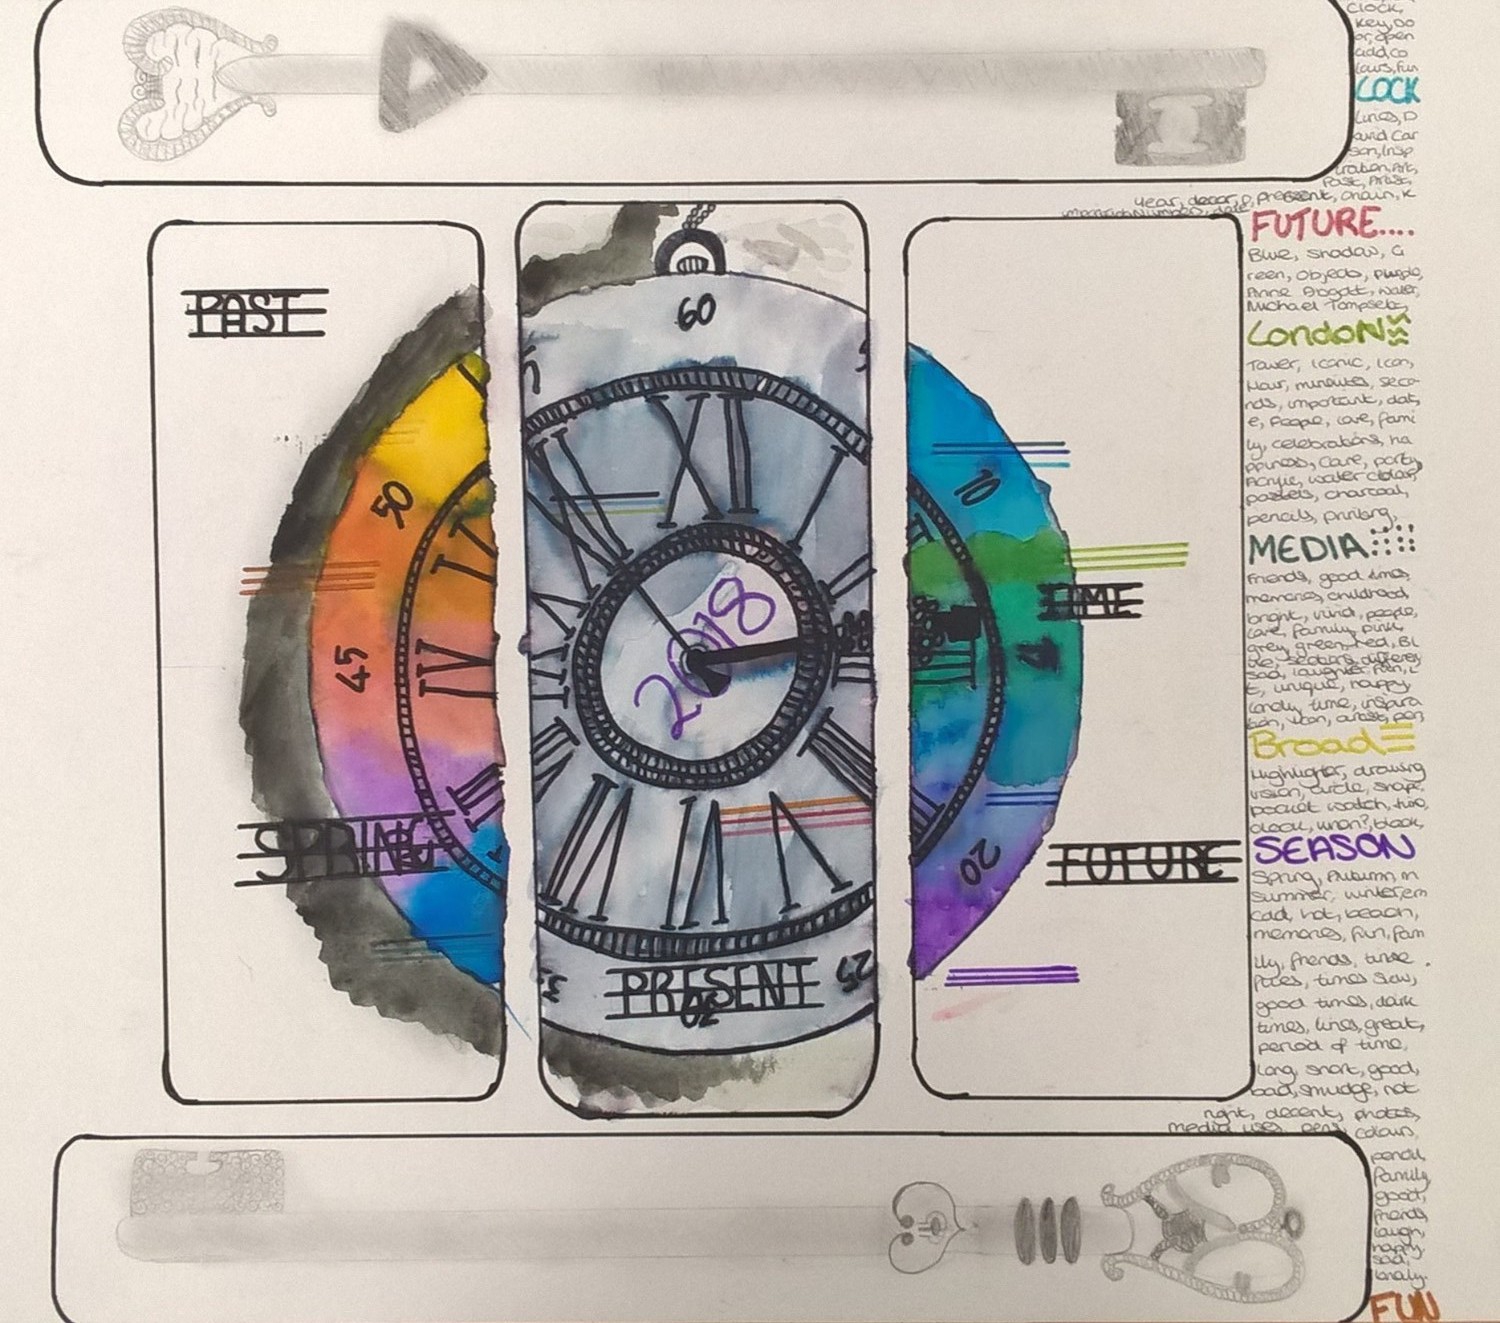 CLOCK,
Key, Do
or, open
add, co
lours, fun
LOCK
Lines, D
avid Car
son, Insp
iration, Art,
Past, Artist,
year, decor, present, chain, K
important Number, date
FUTURE....
Blue, Shadow, G
reen, Objects, purple,
Anne Bogart, Water,
Michael Tompsett,
LONDON
Tower, Iconic, Icon,
Hour, minutes, seco
nds, important, dat
e, People, love, fami
ly, celebrations, ha
ppiness, Care, party,
Acrylic, water colour,
pastels, charcoal,
pencils, printing,
MEDIA
Friends, good times,
memories, childhood,
bright, vivid, people,
care, family, pink,
grey, green, red, Bl
sad, laughter,
t, unique, happy,
lonely, time, inspira
tion, icon, artist, pen,
Broad
Highlighter, drawing
vision, circle, shape,
pocket watch, two,
clock, when?, black,
SEASON
Spring, Autumn, in
Summer, winter, em
cold, hot, beach,
memories, fun, fam
ily, friends, time
flies, times slow,
good times, dark
times, lines, great,
period of time,
long, short, good,
bad, smudge, not
right, decent, photos,
media uses, pens, colours,
pencil,
Family,
good,
friends,
laugh,
happy,
sad,
lonely.
FUN
PAST
50
45
IV
SPRING
60
XII
2018
PRESENT
30
25
10
TIME
20
FUTURE